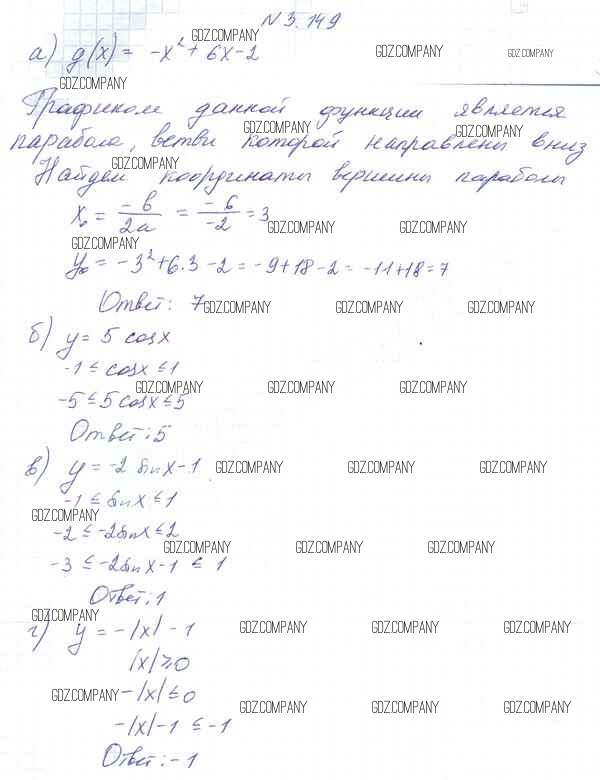 N 3.149
GDZ.COMPANY
а) g(x) = -x² + 6x - 2 GDZ.COMPANY GDZ.COMPANY
GDZ.COMPANY
Графиком данной функции является
GDZ.COMPANY GDZ.COMPANY
парабола, ветви которой направлены вниз
GDZ.COMPANY
Найдем координаты вершины параболы
x₀ = -b/2a = -6/-2 = 3
GDZ.COMPANY GDZ.COMPANY
GDZ.COMPANY
y₀ = -3² + 6·3 - 2 = -9 + 18 - 2 = -11 + 18 = 7
Ответ: 7 GDZ.COMPANY GDZ.COMPANY GDZ.COMPANY
б) y = 5 cos x
-1 ≤ cos x ≤ 1
GDZ.COMPANY GDZ.COMPANY GDZ.COMPANY
-5 ≤ 5 cos x ≤ 5
Ответ: 5
в) y = -2 sin x - 1 GDZ.COMPANY GDZ.COMPANY GDZ.COMPANY
-1 ≤ sin x ≤ 1
GDZ.COMPANY
-2 ≤ -2 sin x ≤ 2
GDZ.COMPANY GDZ.COMPANY GDZ.COMPANY
-3 ≤ -2 sin x - 1 ≤ 1
Ответ: 1
GDZ.COMPANY
г) y = -|x| - 1 GDZ.COMPANY GDZ.COMPANY GDZ.COMPANY
|x| ≥ 0
GDZ.COMPANY -|x| ≤ 0
GDZ.COMPANY GDZ.COMPANY GDZ.COMPANY
-|x| - 1 ≤ -1
Ответ: -1